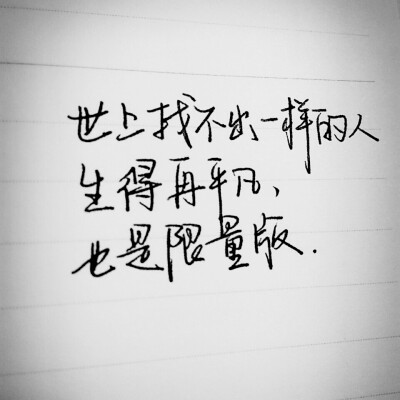 世上找不出一样的人
生得再平凡、
也是限量版.